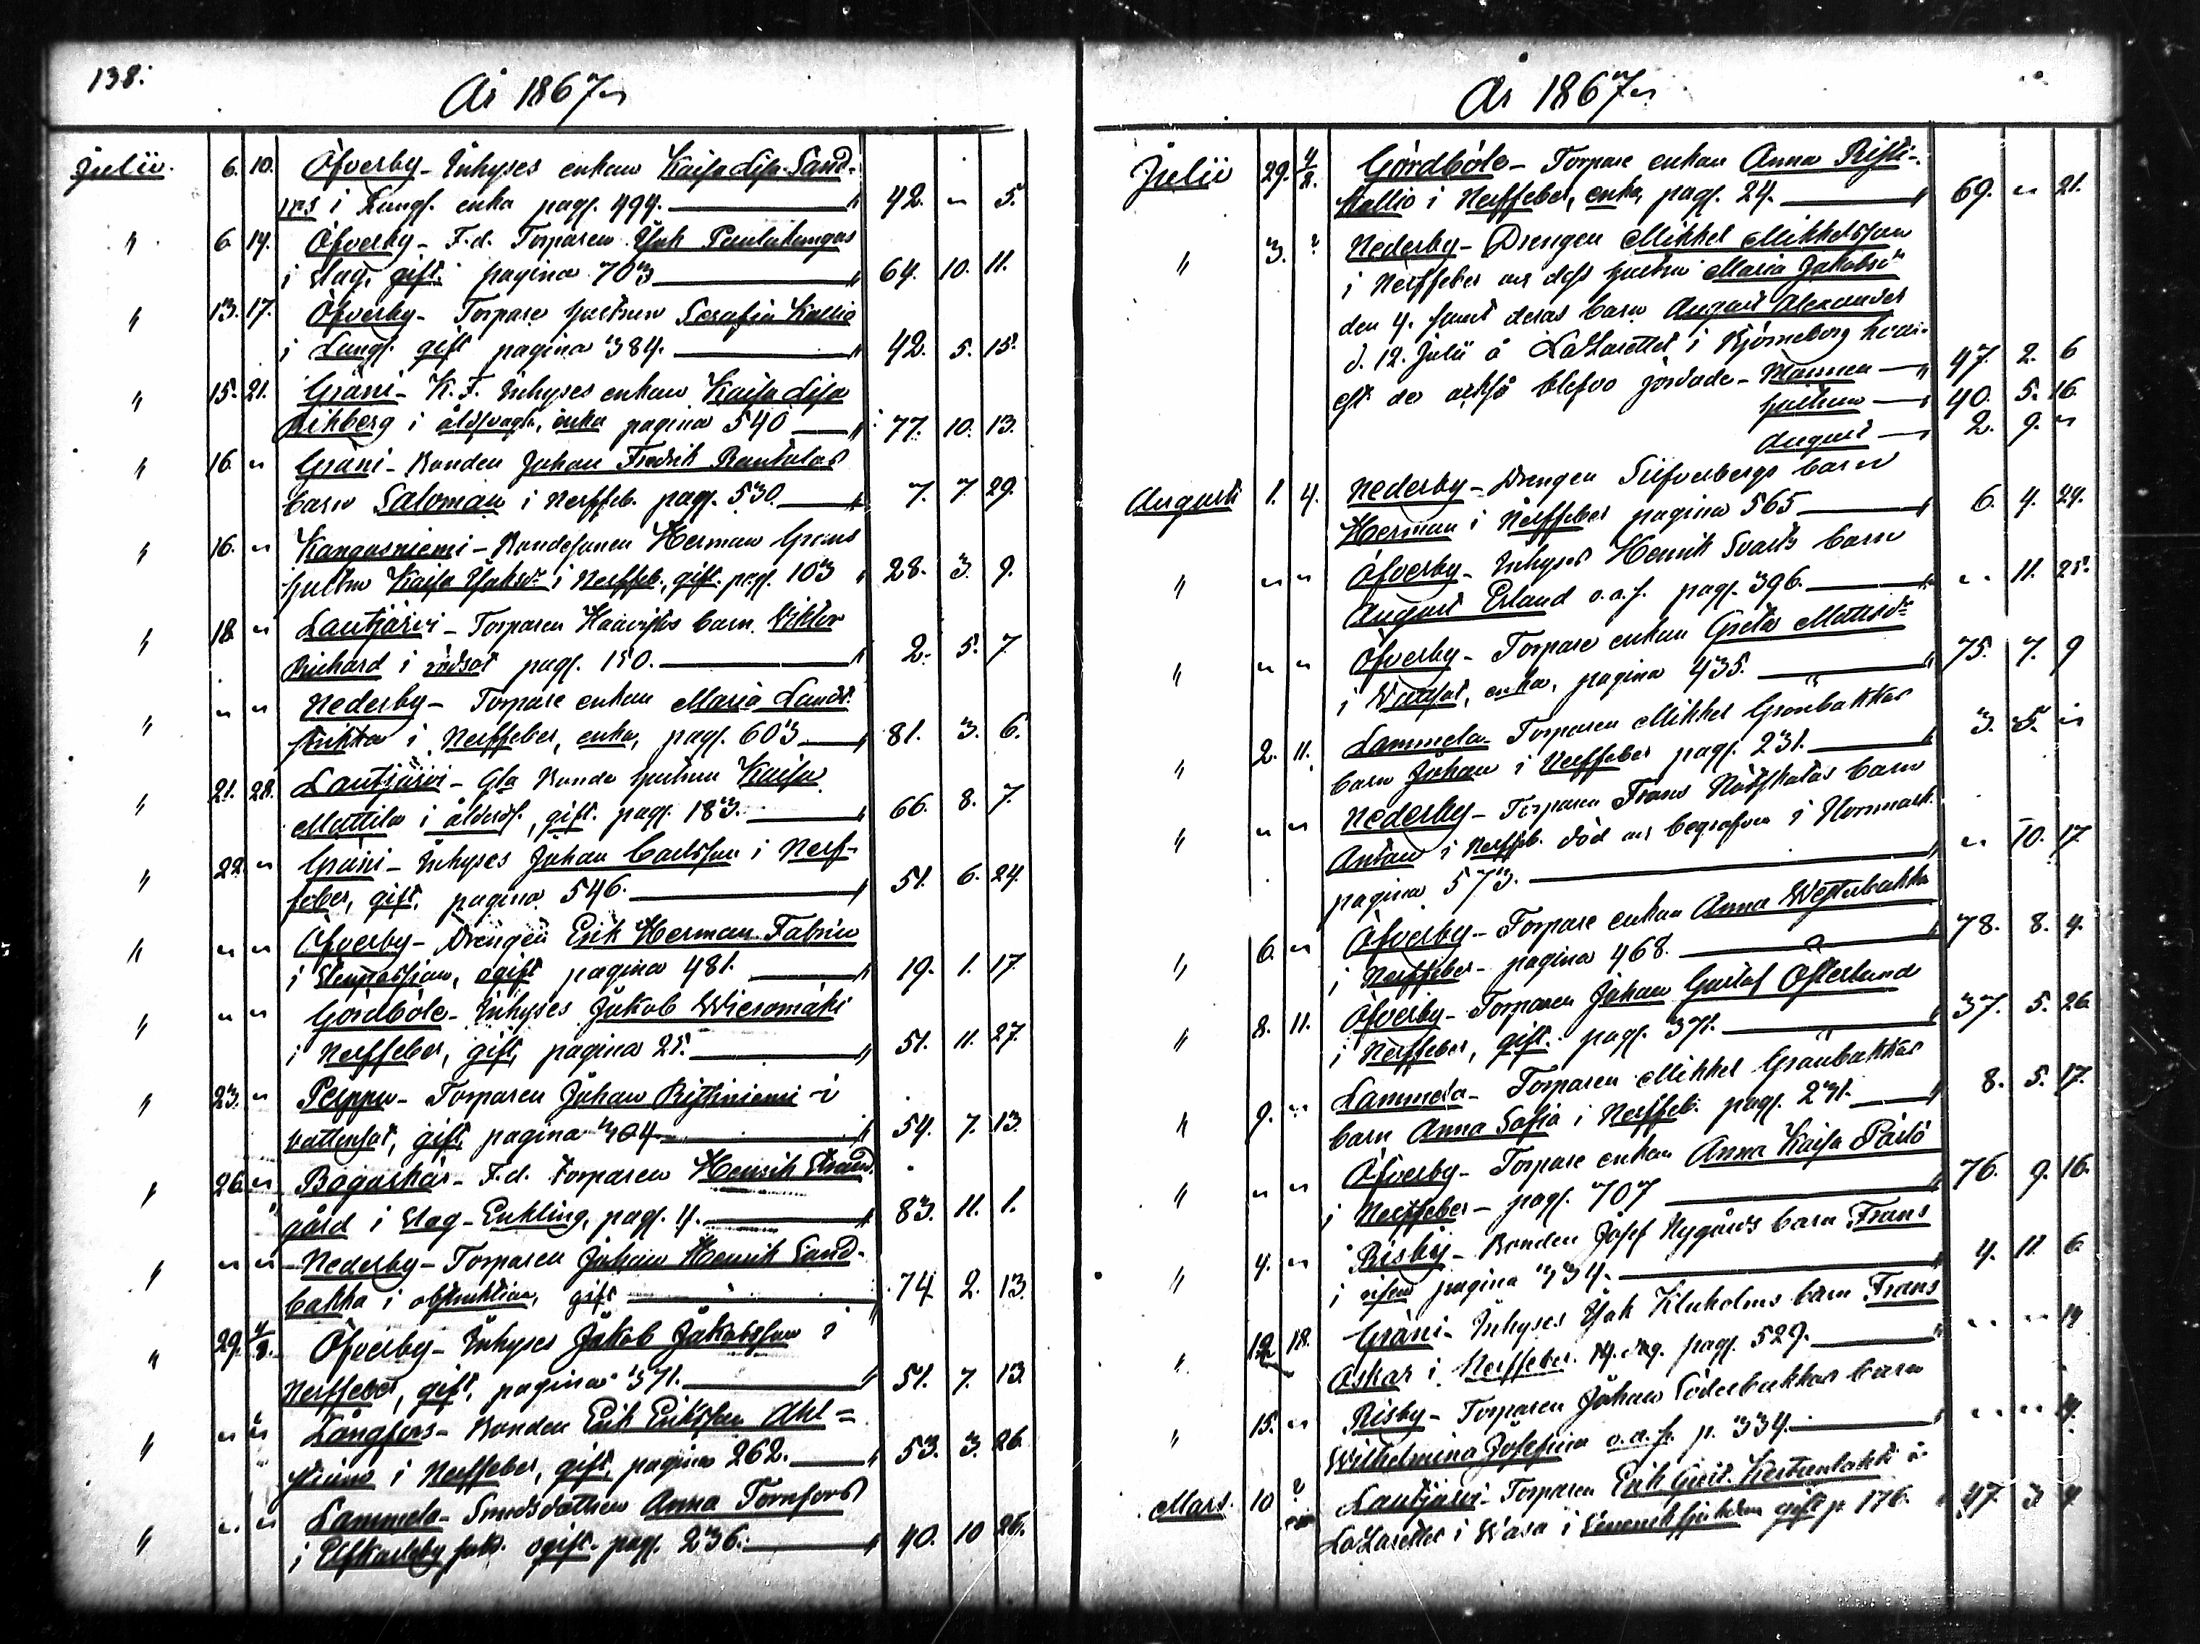 138.
År 1867
Julii. 6. 10. Öfverby - Inhyses enkan Kaisa Lisa Sand-
i Lungs. enka pag. 494. 42. " 5.
" 6 14. Öfverby - F.d. Torparen Isak Pentakangas
i Slag, gift. pagina 703 64. 10. 11.
" 13. 17. Öfverby - Torpare hustrun Serafia Kallio
i Lungs. gift pagina 384. 42. 5. 15.
" 15. 21. Gräni - K. F. Inhyses enkan Kaisa Lisa
Rihberg i ålds, enka pagina 540 77. 10. 13.
" 16. " Gräni - Bonden Johan Fredrik Rantalas
barn Saloman i Nerffeb. pag. 530. 7. 7. 29.
" 16. " Kangasniemi - Bondesonen Herman Grens
hustru Kaisa Isaksdr i Nerffeb., gift. pag. 103 28. 3. 9.
" 18. " Lautjärvi - Torparen Haavistos barn Viktor
Richard i rödsot pag. 150. 2. 5. 7
" " " Nederby - Torpare enkan Maria Lands-
i Nerffeber, enka, pag. 603 81. 3. 6.
" 21. 28. Lautjärvi - Gla Bonde hustrun Kaisa
Mattila i ålderds., gift. pag. 183. 66. 8. 7.
" 22. " Gräni - Inhyses Johan Carlsson i Nerf-
feber, gift, pagina 546. 51. 6. 24.
" " " Öfverby - Drengen Erik Herman Fabrin
i ogift pagina 481. 19. 1. 17.
" " " Gördböle - Inhyses Jakob Wieromäki
i Nerffeber, gift, pagina 25. 51. 11. 27.
" 23. " Perppu - Torparen Johan Ristiniemi i
vattensot, gift, pagina 304 54. 7. 13.
" 26. " Bogaskär - F.d. Torparen Henrik Strand-
gård i Slag - Enkling, pag. 4. 83. 11. 1.
" " " Nederby - Torparen Johan Henrik Sand-
backa i obstruktion, gift 74. 2. 13.
" 29. 4/8. Öfverby - Inhyses Jakob Jakobsson i
Nerffeber, gift, pagina 371. 51. 7. 13.
" " " Långfors - Bonden Erik Eriksson Ahl=
i Nerffeber, gift, pagina 262. 53. 3. 26.
" " " Lammela - Smedsdottren Anna Tornfors
i Elfkarleby ogift. pag. 236. 40. 10 26.
År 1867
Julii 29. 4/8. Gördböle - Torpare enkan Anna Risti-
Kallio i Nerffeber, enka, pag. 24. 69. " 21.
" 3. ? Nederby - Drengen Mikkel Mikkelsson
i Nerffeber och dess hustru Maria Jakobsdr
den 4. samt deras barn August Alexander
d. 12. Julii å Lazarettet i Björneborg hvar-
est de också blefvo jordade - Mannen 47. 2. 6
hustrun 40. 5. 16.
August 2. 9. "
Augusti 1. 4. Nederby - Drengen Silfverbergs barn
Herman i Nerffeber pagina 565 6. 4. 24.
" " " Öfverby - Inhyses Henrik Svarts barn
August Erland o.a.s. pag. 396. " 11. 25.
" " " Öfverby - Torpare enkan Greta Mattsdr
i Wattsot, enka, pagina 435. 75. 7. 9
" 2. 11. Lammela - Torparen Mikkel Grönbakkas
barn Johan i Nerffeber pag. 231. 3. 5. "
" " " Nederby - Torparen Frans barn
Antan i Nerffeb. död och begrafven i Norrmark.
pagina 573. " 10. 17.
" 6. " Öfverby - Torpare enkan Anna Westerbakka
i Nerffeber - pagina 468. 78. 8. 4.
" 8. 11. Öfverby - Torparen Johan Gustaf Österlund
i Nerffeber, gift. pag. 371. 37. 5. 26
" 9. " Lammela - Torparen Mikkel Grönbakkas
barn Anna Sofia i Nerffeb. pag. 231. 8. 5. 17.
" " " Öfverby - Torpare enkan Anna Kaisa Pärlö
i Nerffeber - pag. 707 76. 9. 16.
" 4. " Risby - Bonden Josef Nygårds barn Frans
i pagina 334. 4. 11. 6
" 12 18. Gräni - Inhyses Isak Kluholms barn Frans
Oskar i Nerffeber. 14. pag. 529. " " 14
" 15. " Risby - Torparen Johan Söderbakkas barn
Wilhelmina Josefina o.a.s. p. 334. " " 14.
Mars. 10 ? Lautjärvi - Torparen Erik Gust. å
Lazarettet i Wasa i gift p. 176. 47. 3. 4